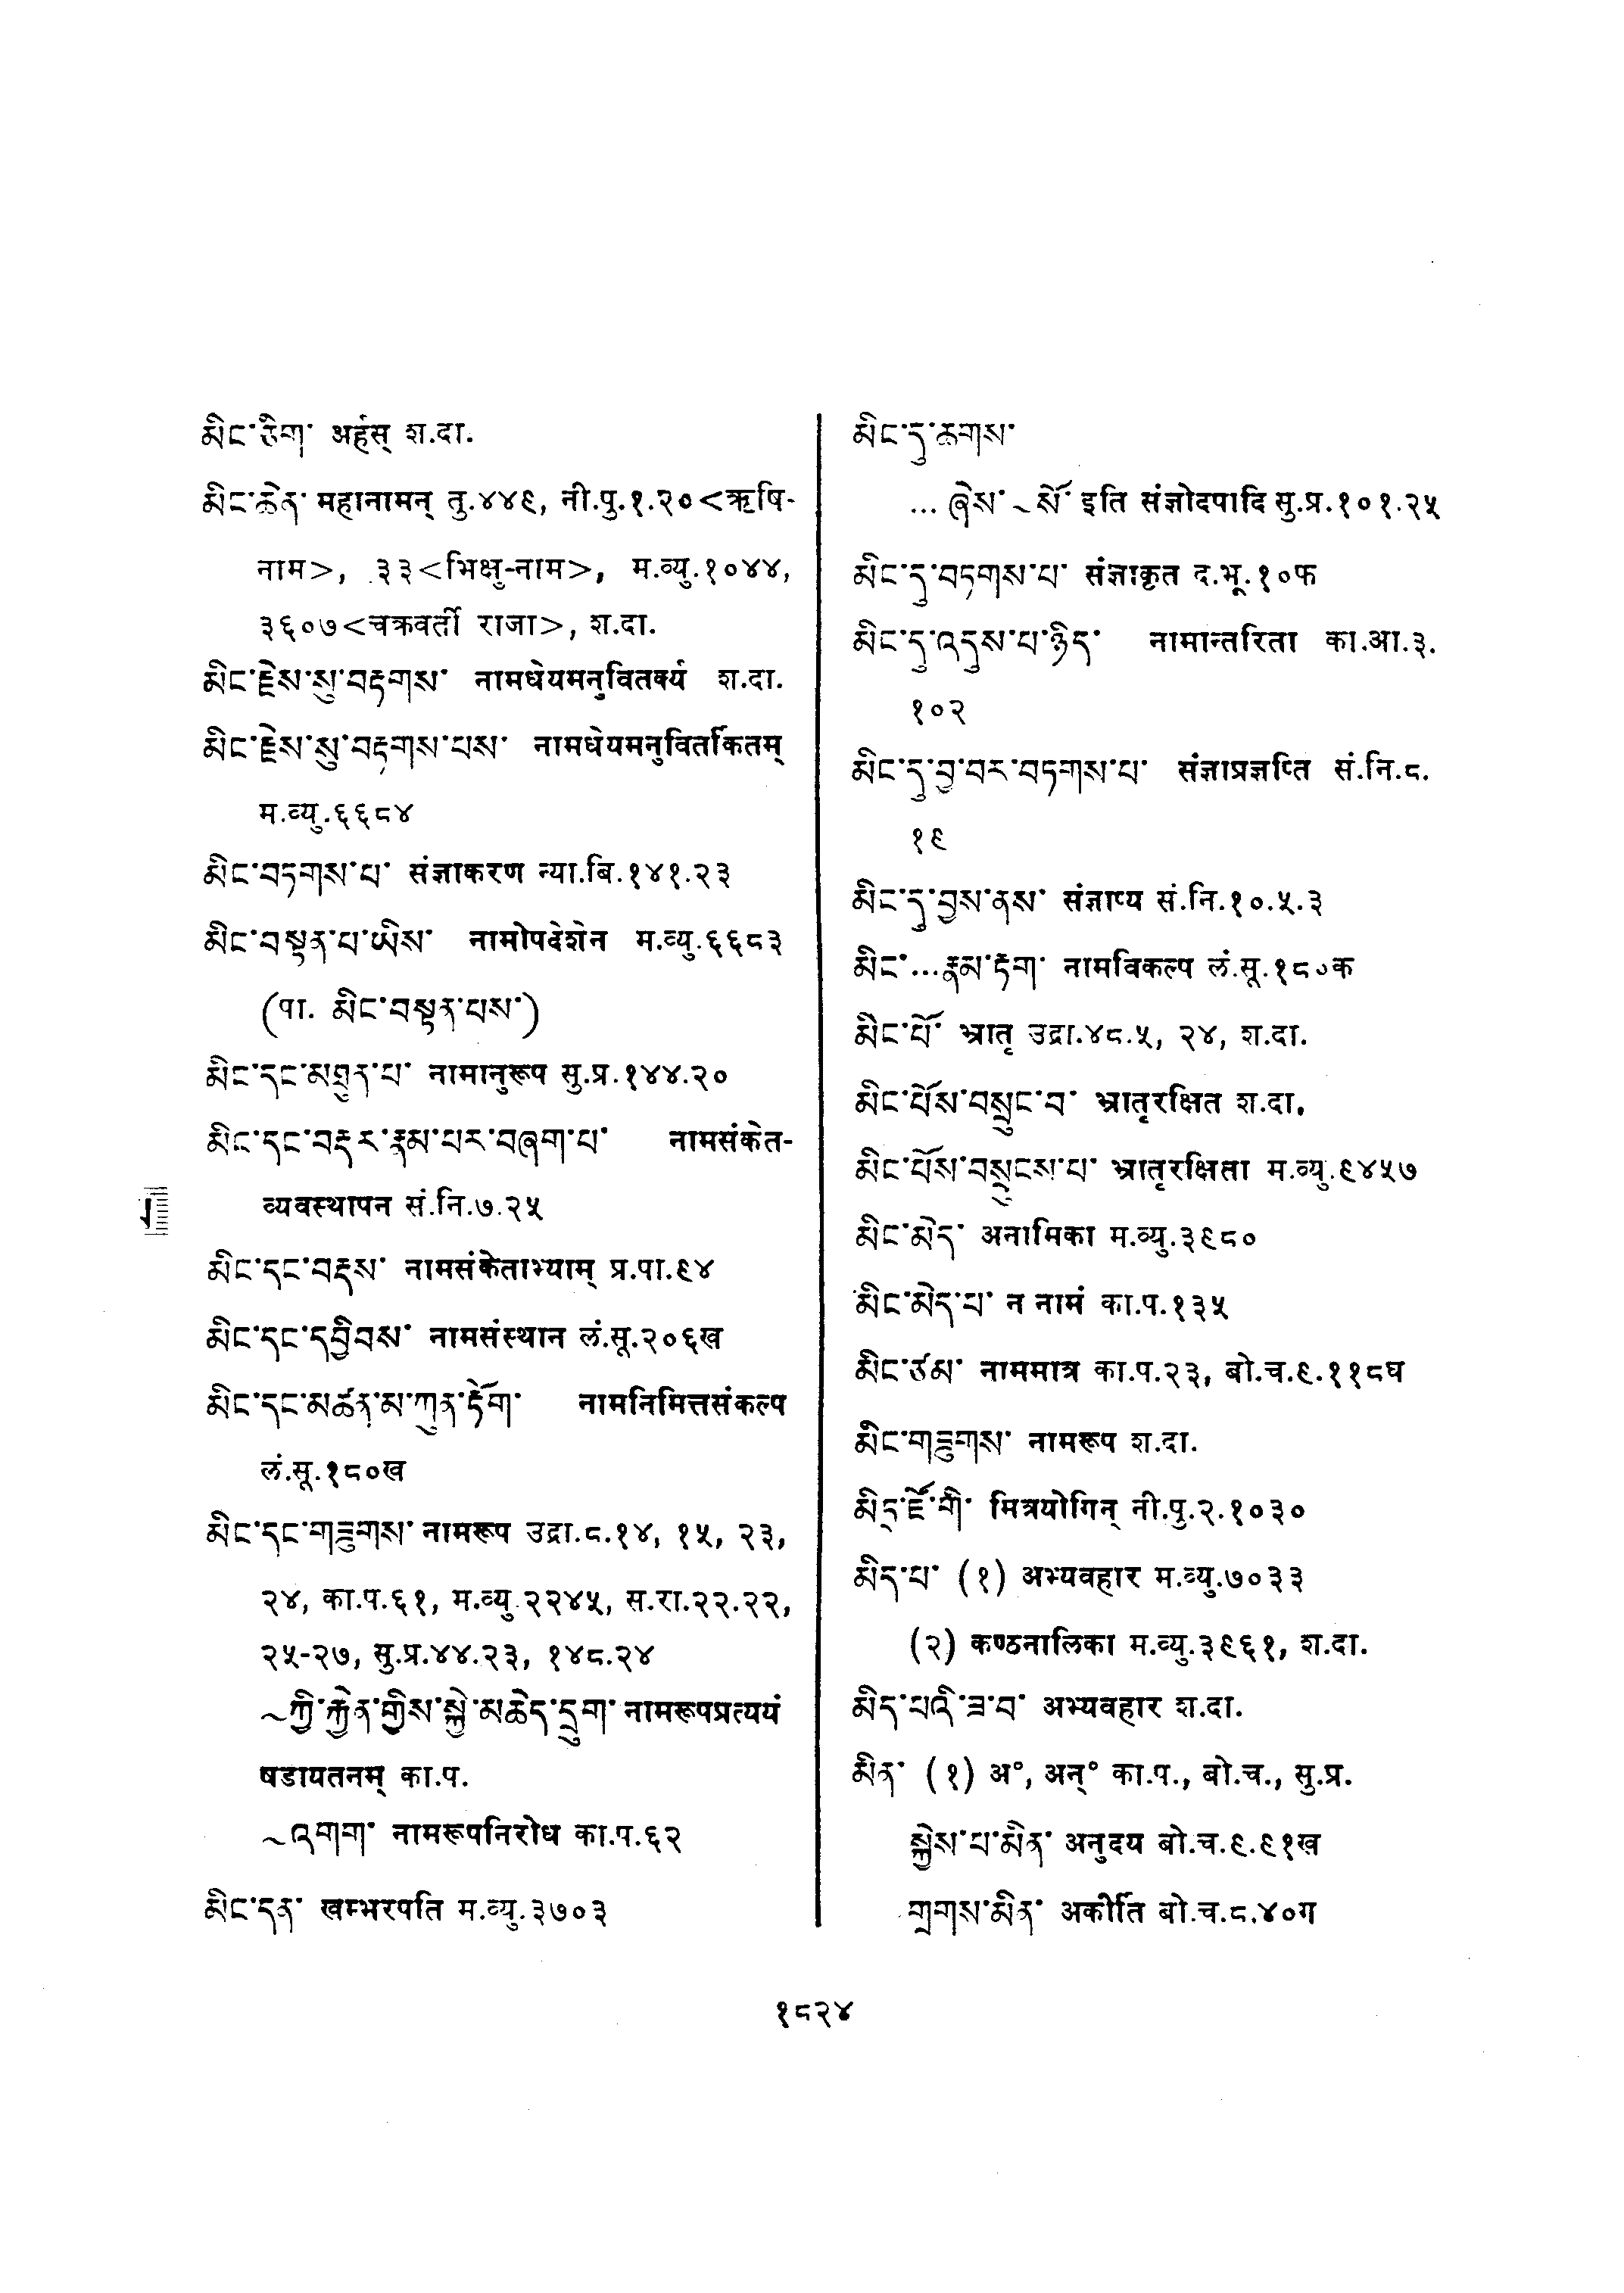 མིང་ཅིག་ अर्हस् श.दा.
མིང་ཆེན་ महानामन् तु.४४९, नी.पु.१.२०<ऋषि-
नाम>, ३३<भिक्षु-नाम>, म.व्यु.१०४४,
३६०७<चक्रवर्ती राजा>, श.दा.
མིང་རྗེས་སུ་བརྟགས་ नामधेयमनुवितर्क्य श.दा.
མིང་རྗེས་སུ་བརྟགས་པས་ नामधेयमनुवितर्कितम्
म.व्यु.६६८४
མིང་བཏགས་པ་ संज्ञाकरण न्या.बि.१४१.२३
མིང་བསྟན་པ་ཡིས་ नामोपदेशेन म.व्यु.६६८३
(पा. མིང་བསྟན་པས་)
མིང་དང་མཐུན་པ་ नामानुरूप सु.प्र.१४४.२०
མིང་དང་བརྡར་རྣམ་པར་བཞག་པ་ नामसंकेत-
व्यवस्थापन सं.नि.७.२५
མིང་དང་བརྡས་ नामसंकेताभ्याम् प्र.पा.९४
མིང་དང་དབྱིབས་ नामसंस्थान लं.सू.२०६ख
མིང་དང་མཚན་མ་ཀུན་རྟོག་ नामनिमित्तसंकल्प
लं.सू.१८०ख
མིང་དང་གཟུགས་ नामरूप उद्रा.८.१४, १५, २३,
२४, का.प.६१, म.व्यु.२२४५, स.रा.२२.२२,
२५-२७, सु.प्र.४४.२३, १४८.२४
~ཀྱི་རྐྱེན་གྱིས་སྐྱེ་མཆེད་དྲུག་ नामरूपप्रत्ययं
षडायतनम् का.प.
~འགག་ नामरूपनिरोध का.प.६२
མིང་དན་ खम्भरपति म.व्यु.३७०३
མིང་དུ་ཆགས་
... ཞེས་~སོ་ इति संज्ञोदपादि सु.प्र.१०१.२५
མིང་དུ་བཏགས་པ་ संज्ञाकृत द.भू.१०फ
མིང་དུ་འདུས་པ་ཉིད་ नामान्तरिता का.आ.३.
१०२
མིང་དུ་བྱ་བར་བཏགས་པ་ संज्ञाप्रज्ञप्ति सं.नि.८.
१९
མིང་དུ་བྱས་ནས་ संज्ञाप्य सं.नि.१०.५.३
མིང་...རྣམ་རྟོག་ नामविकल्प लं.सू.१८०क
མིང་པོ་ भ्रातृ उद्रा.४८.५, २४, श.दा.
མིང་པོས་བསྲུང་བ་ भ्रातृरक्षित श.दा.
མིང་པོས་བསྲུངས་པ་ भ्रातृरक्षिता म.व्यु.९४५७
མིང་མེད་ अनामिका म.व्यु.३९८०
མིང་མེད་པ་ न नामं का.प.१३५
མིང་ཙམ་ नाममात्र का.प.२३, बो.च.९.११८घ
མིང་གཟུགས་ नामरूप श.दा.
མིདྲ་ཛོ་གི་ मित्रयोगिन् नी.पु.२.१०३०
མིད་པ་ (१) अभ्यवहार म.व्यु.७०३३
(२) कण्ठनालिका म.व्यु.३९६१, श.दा.
མིད་པའི་ཟ་བ་ अभ्यवहार श.दा.
མིན་ (१) अ°, अन्° का.प., बो.च., सु.प्र.
སྐྱེས་པ་མིན་ अनुदय बो.च.९.९१ख
གྲགས་མིན་ अकीर्ति बो.च.८.४०ग
१८२४